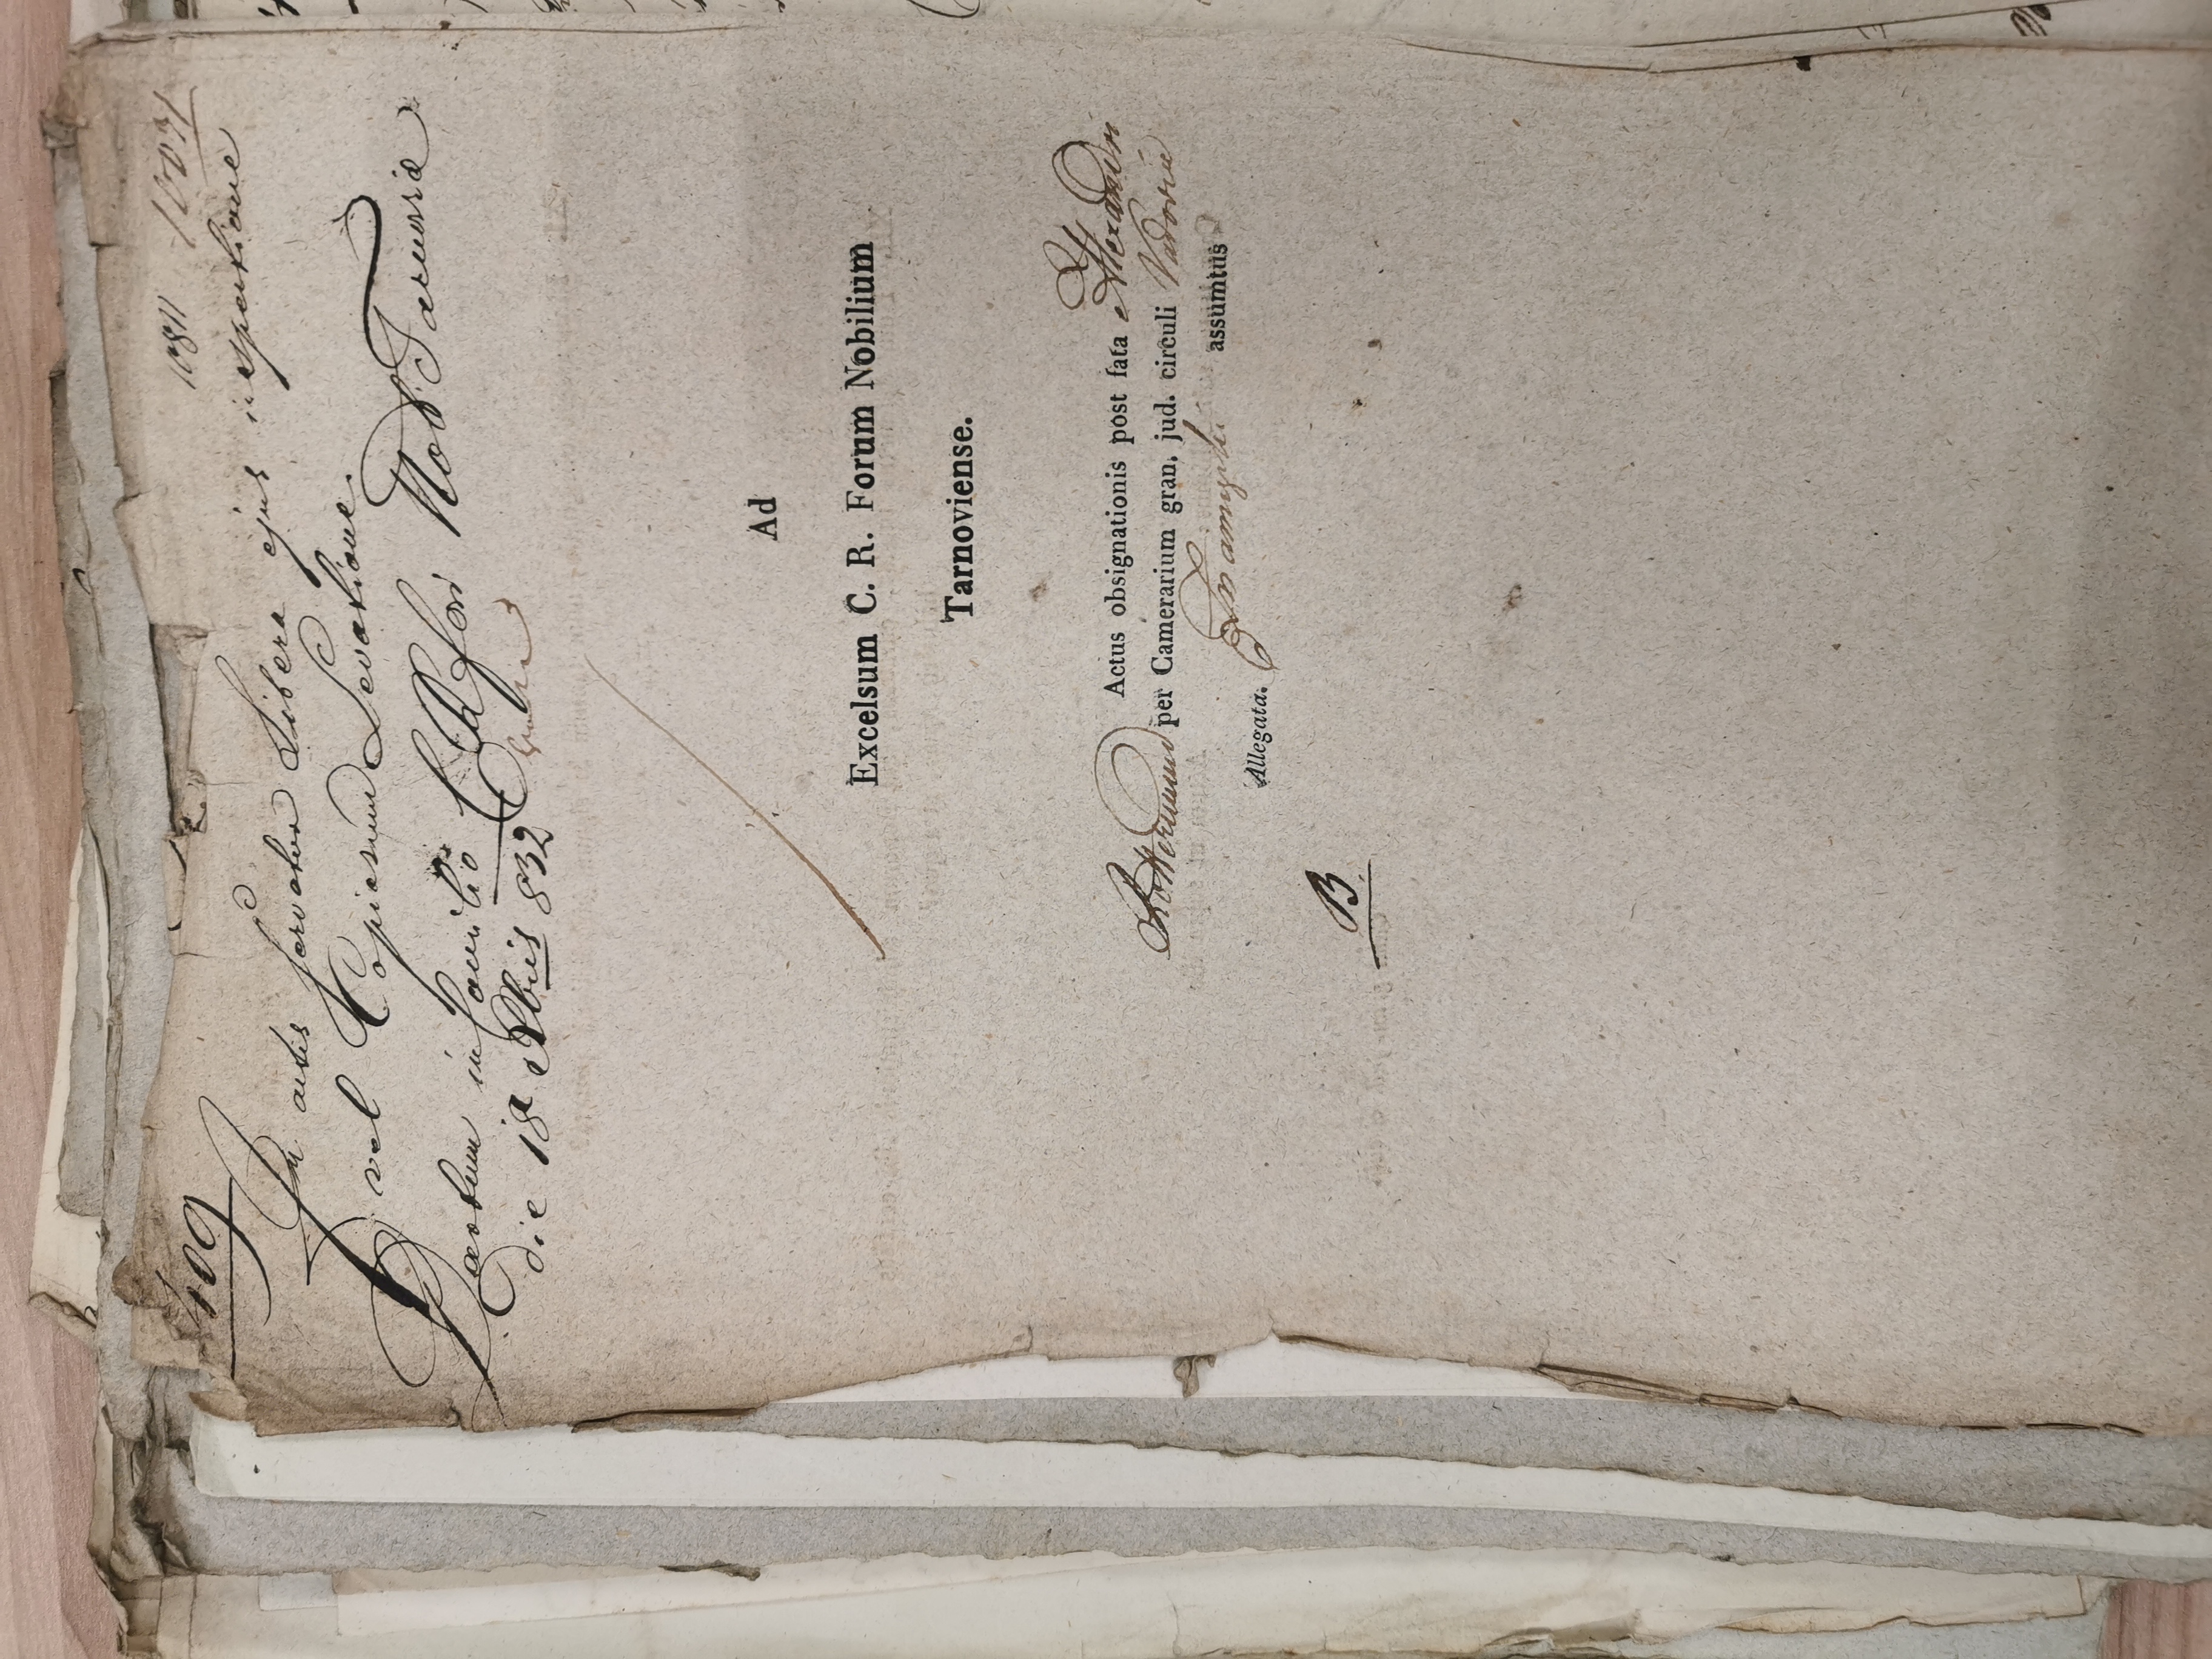 409
1081 10071
In actis servatur libera ejus inspectione
vel Copiarum Levatione.
Datum in Consilio C R fori Nob Tarnoviae
die 18 Xbris 832
Ad
Excelsum C. R. Forum Nobilium
Tarnoviense.
Actus obsignationis post fata Alexandri
Rottermund per Camerarium gran. jud. circuli Vadovic
assumtus
Allegata.
B.